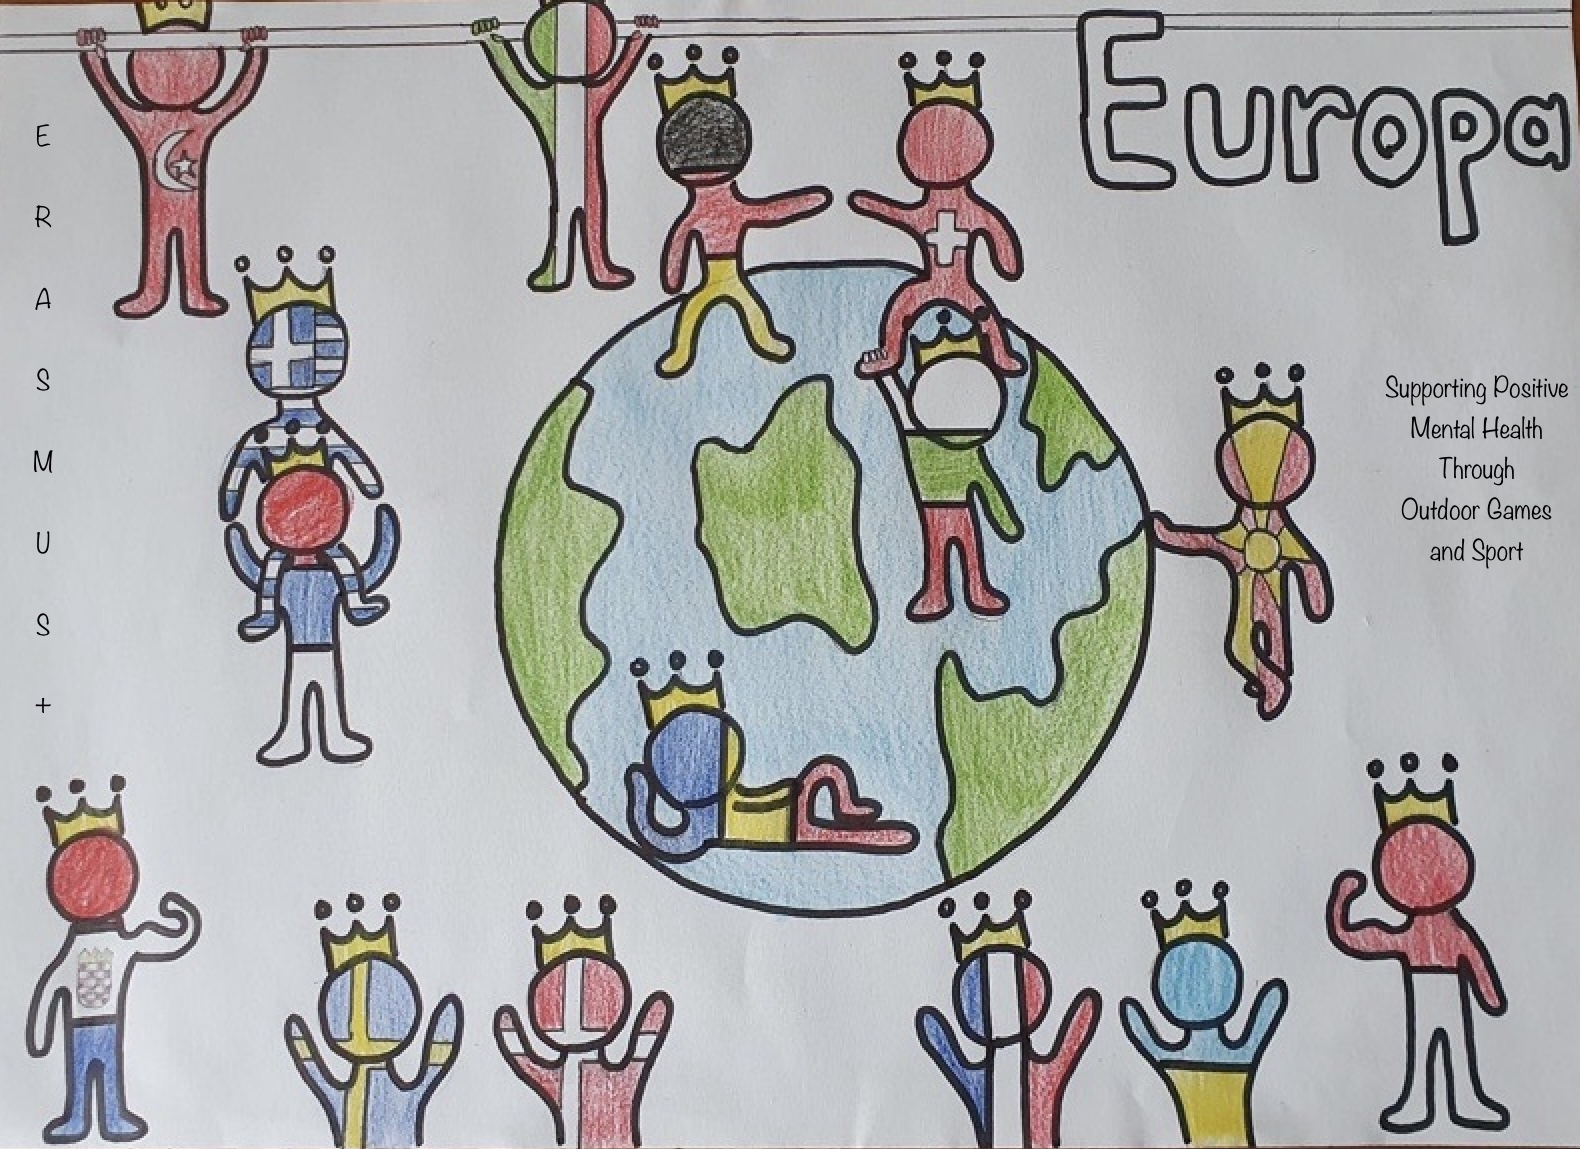 Europa
E
R
A
S
M
U
S
+
Supporting Positive
Mental Health
Through
Outdoor Games
and Sport